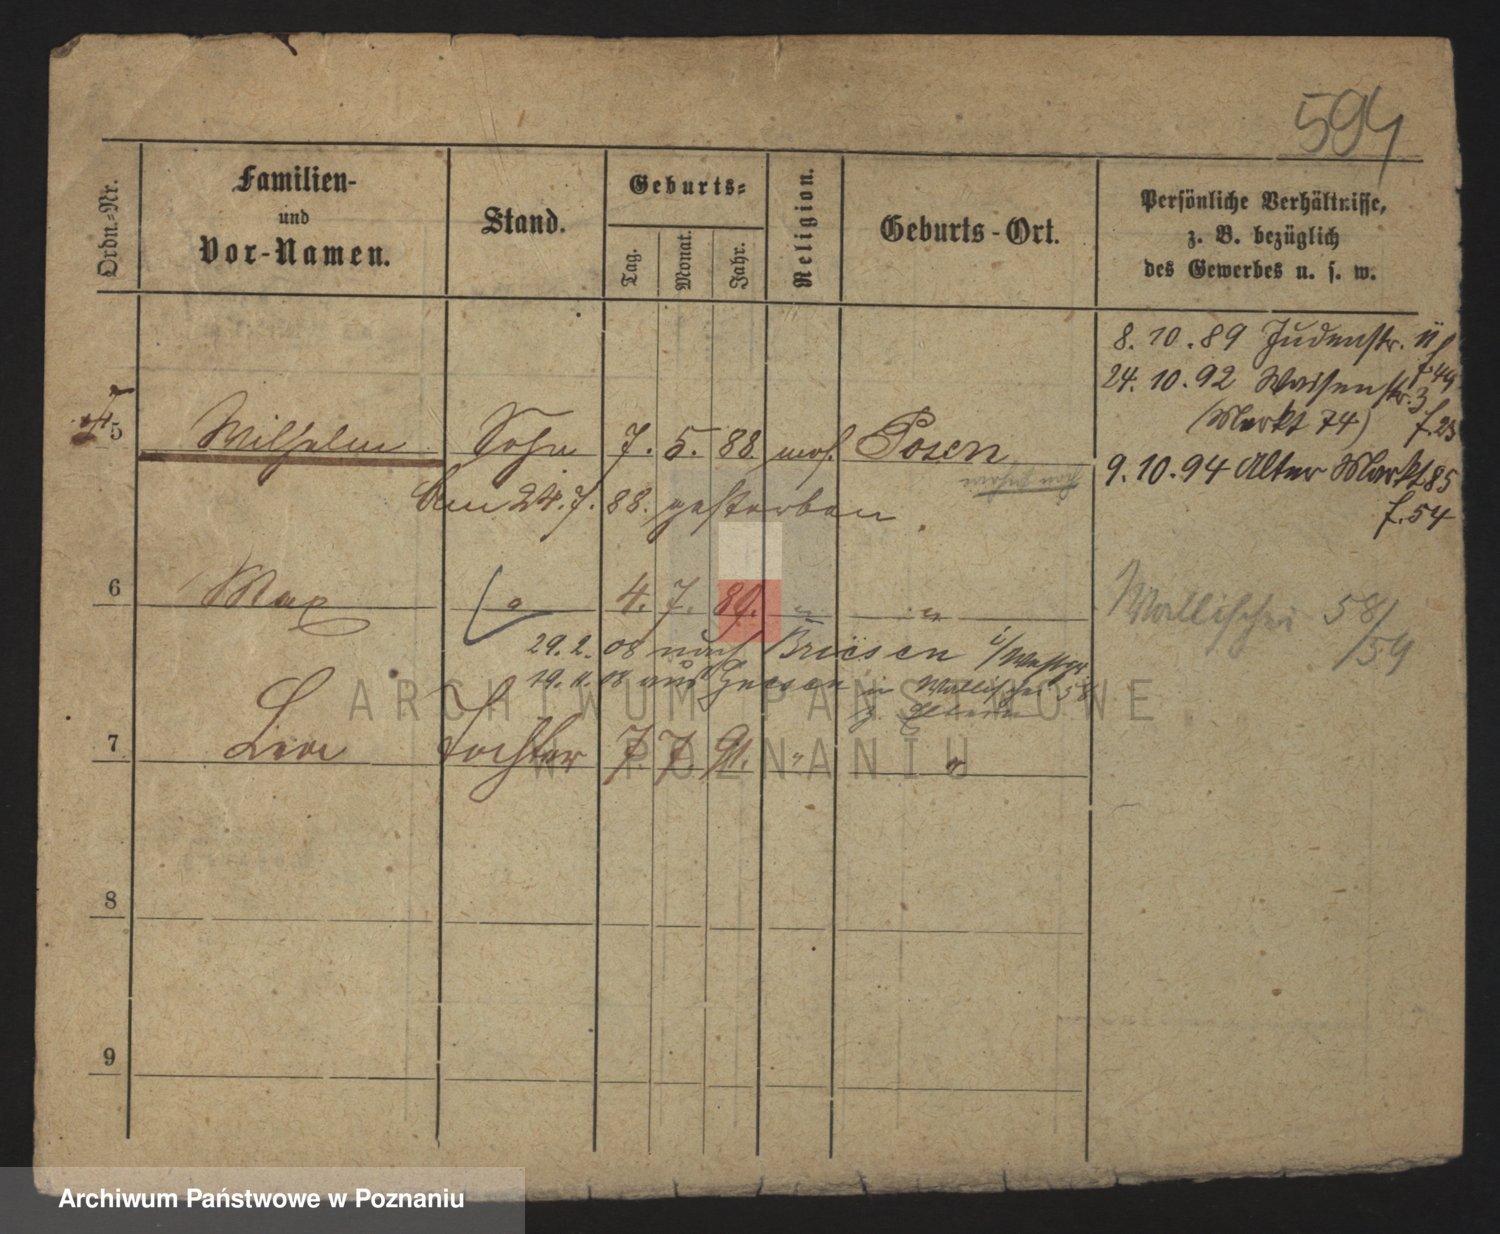 594
Ordn.-Nr.
Familien-
und
Vor-Namen.
Stand.
Geburts-
Tag.
Monat.
Jahr.
Religion.
Geburts-Ort.
Persönliche Verhältnisse,
z. B. bezüglich
des Gewerbes u. s. w.
8. 10. 89 Judenstr. 11
f. 49
24. 10. 92 Waisenstr. 3
(Markt 74) f. 23
9. 10. 94 Alter Markt 85
f. 54
5 Wilhelm Sohn 7. 5. 88 mos. Posen
Am 24. 7. 88. gestorben.
6 Max 4. 7. 89. " "
Wallischei 58/
/59
29. 2. 08 nach Briesen i/Westpr
19. 11. 08 aus Gnesen in Wallischei 58
z Eltern
7 Tochter 7. 7. 91. " "
8
9
ARCHIWUM PAŃSTWOWE
W POZNANIU
Archiwum Państwowe w Poznaniu